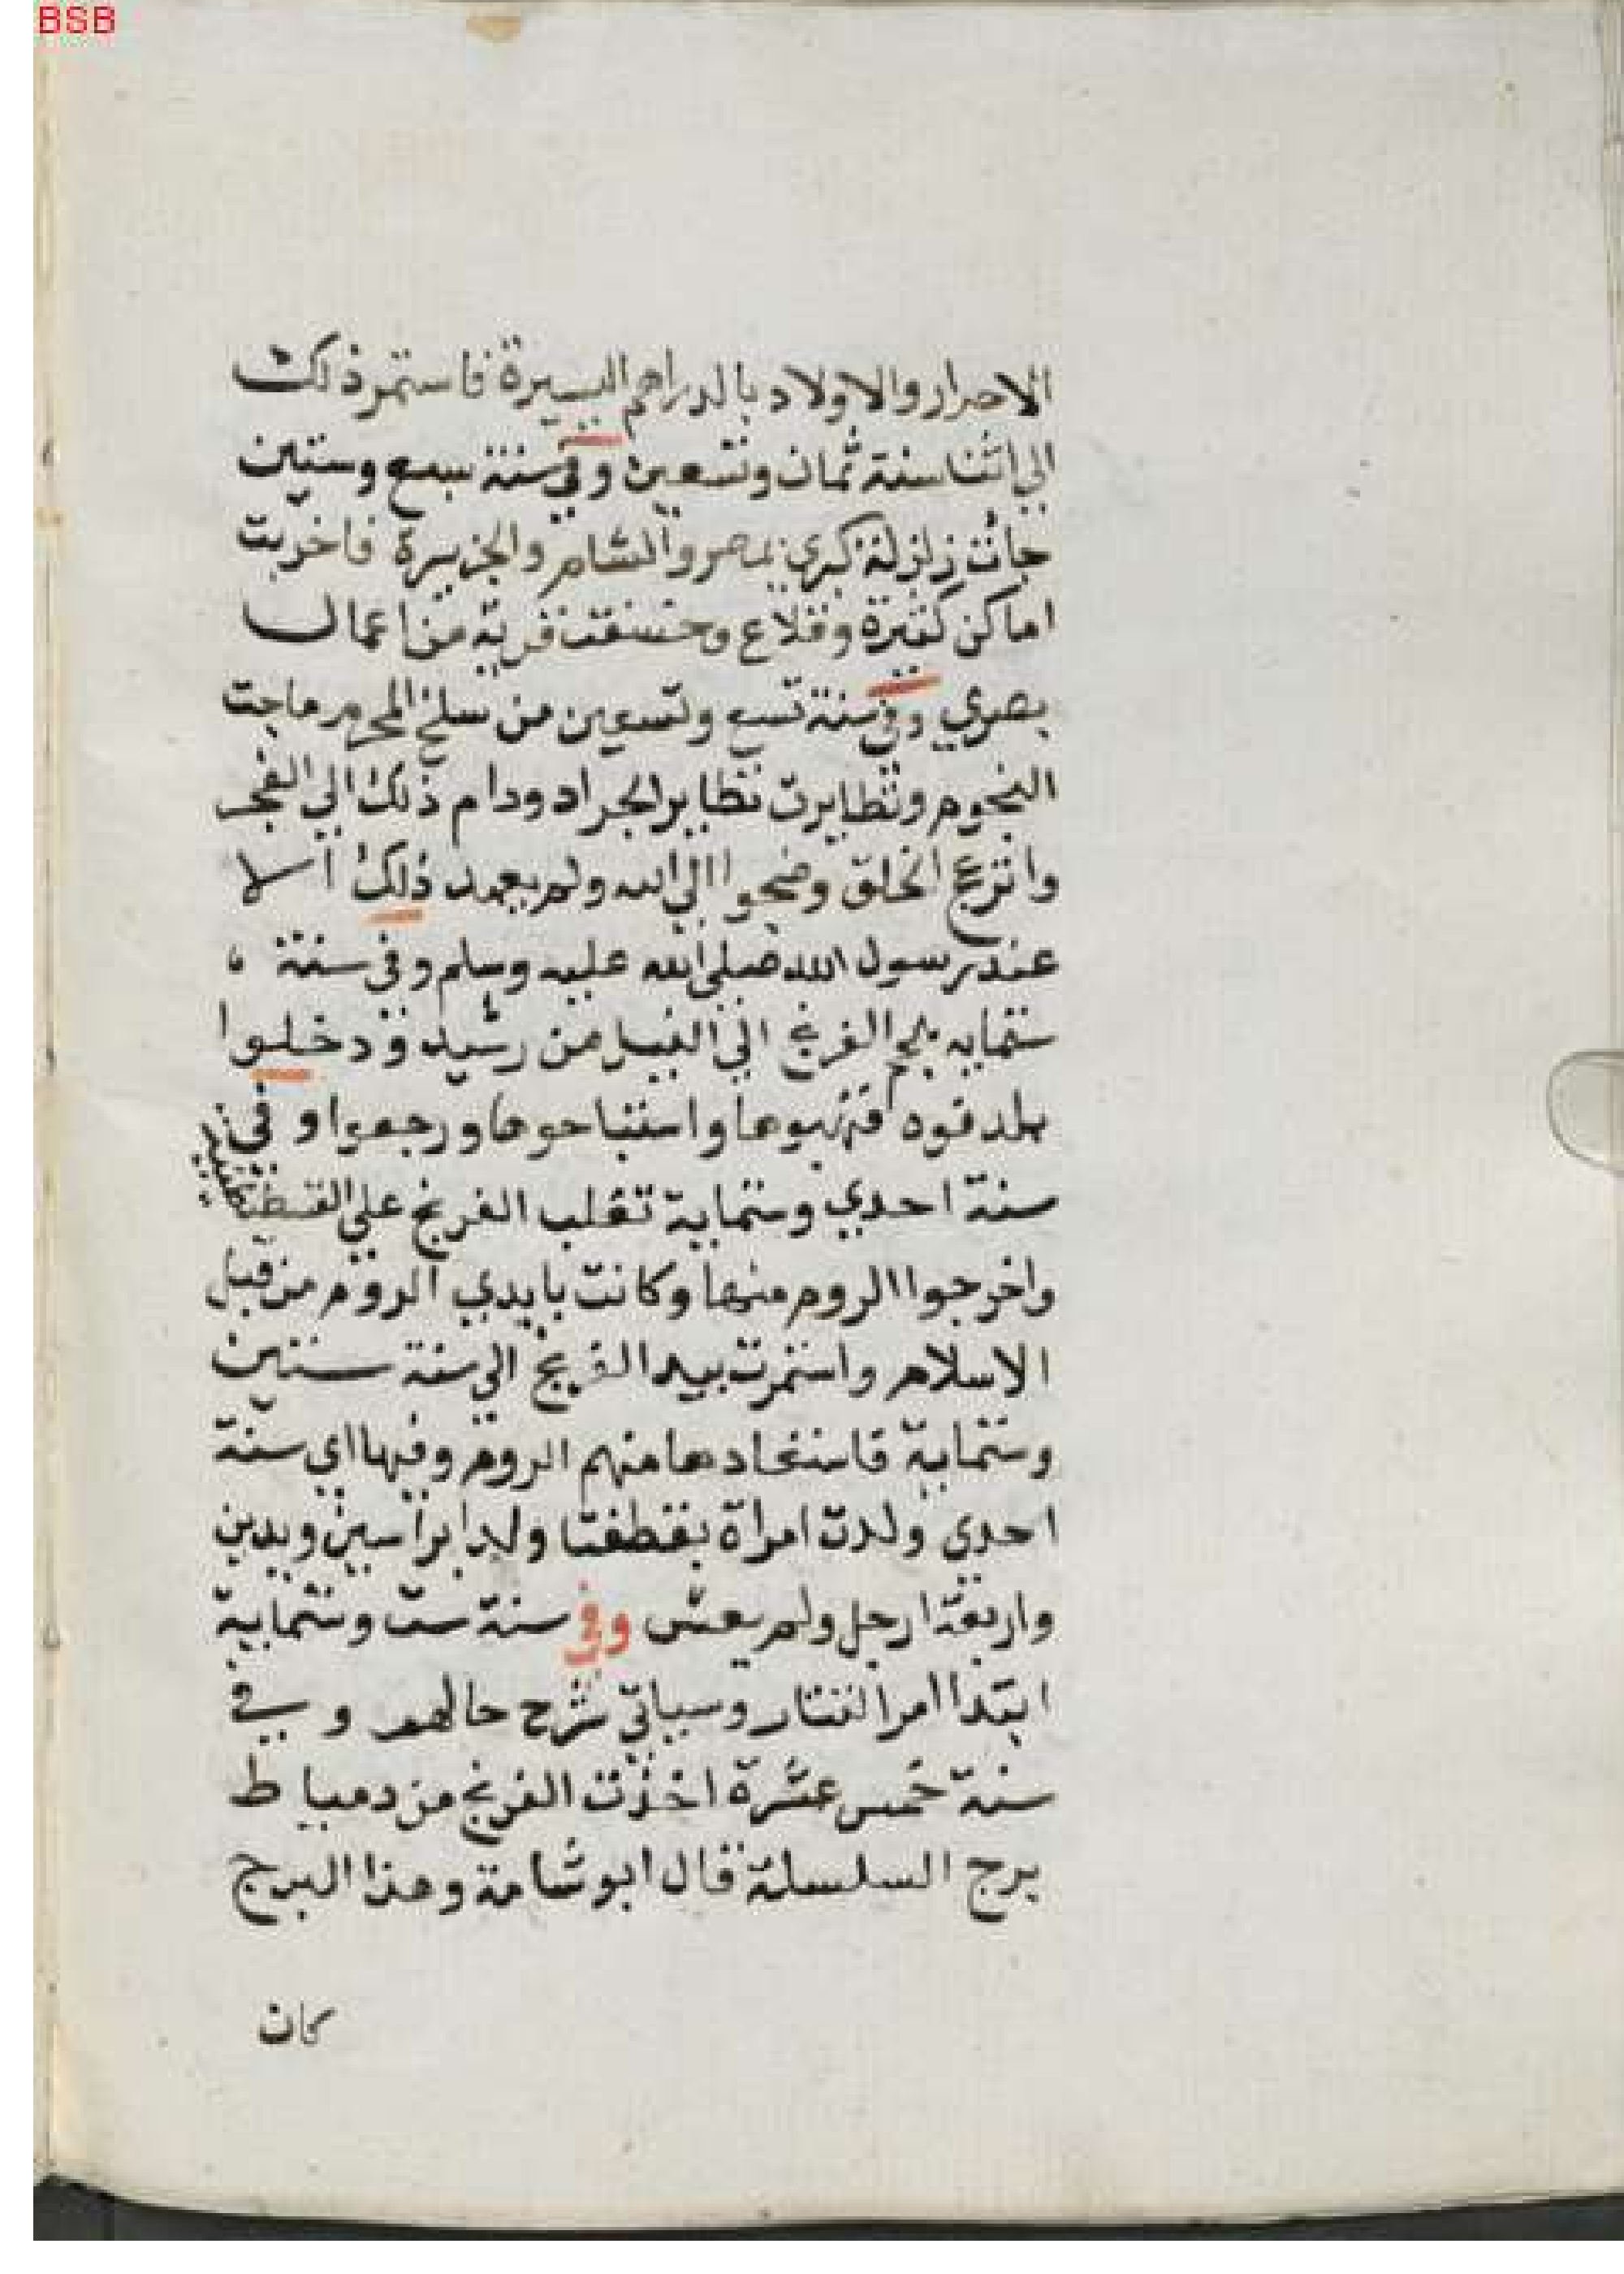 BSB
الاحرار والاولاد بالدراهم اليسيرة فاستمر ذلك
الي اثنا سنة ثمان وتسعين وفي سنة سبع وستين
جأت زلزلة كبري بمصر والشام والجزيرة فاخربت
اماكن كثيرة وقلاع وخسفت قرية من اعمال
بصري وفي سنة تسع وتسعين من سلخ المحرم ماجت
النجوم وتطايرت تطاير الجراد ودام ذلك الي الفجر
وانزعج الخلق وضجوا الي الله ولم يعهد ذلك الا
عند رسول الله صلي الله عليه وسلم وفي سنة
ستمايه الفرنج الي النيل من رشيد ودخلوا
بلد فوه فنهبوها واستباحوها ورجعوا وفي
سنة احدي وستماية تغلب الفرنج علي القسطنطينية
واخرجوا الروم منها وكانت بايدي الروم من قبل
الاسلام واستمرت بيد الفرنج الي سنة ستين
وستماية فاستعادها منهم الروم وفيها اي سنة
احدي ولدت امراة بقطفتا ولدا براسين ويدين
واربعة ارجل ولم يعش وفي سنة ست وستماية
ابتدا امر التتار وسياتي شرح حالهم وفي
سنة خمس عشرة اخذت الفرنج من دمياط
برج السلسلة قال ابو شامة وهذا البرج
كان